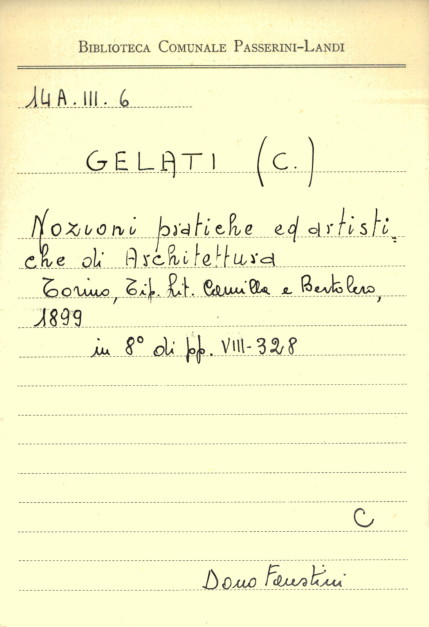 BIBLIOTECA COMUNALE PASSERINI-LANDI
14A.III.6
GELATI (C.)
Nozioni pratiche ed artisti-
che di Architettura
Torino, Tip. Lit. Camilla e Bertolero,
1899
in 8° di pp. VIII-328
C
Dono Faustini